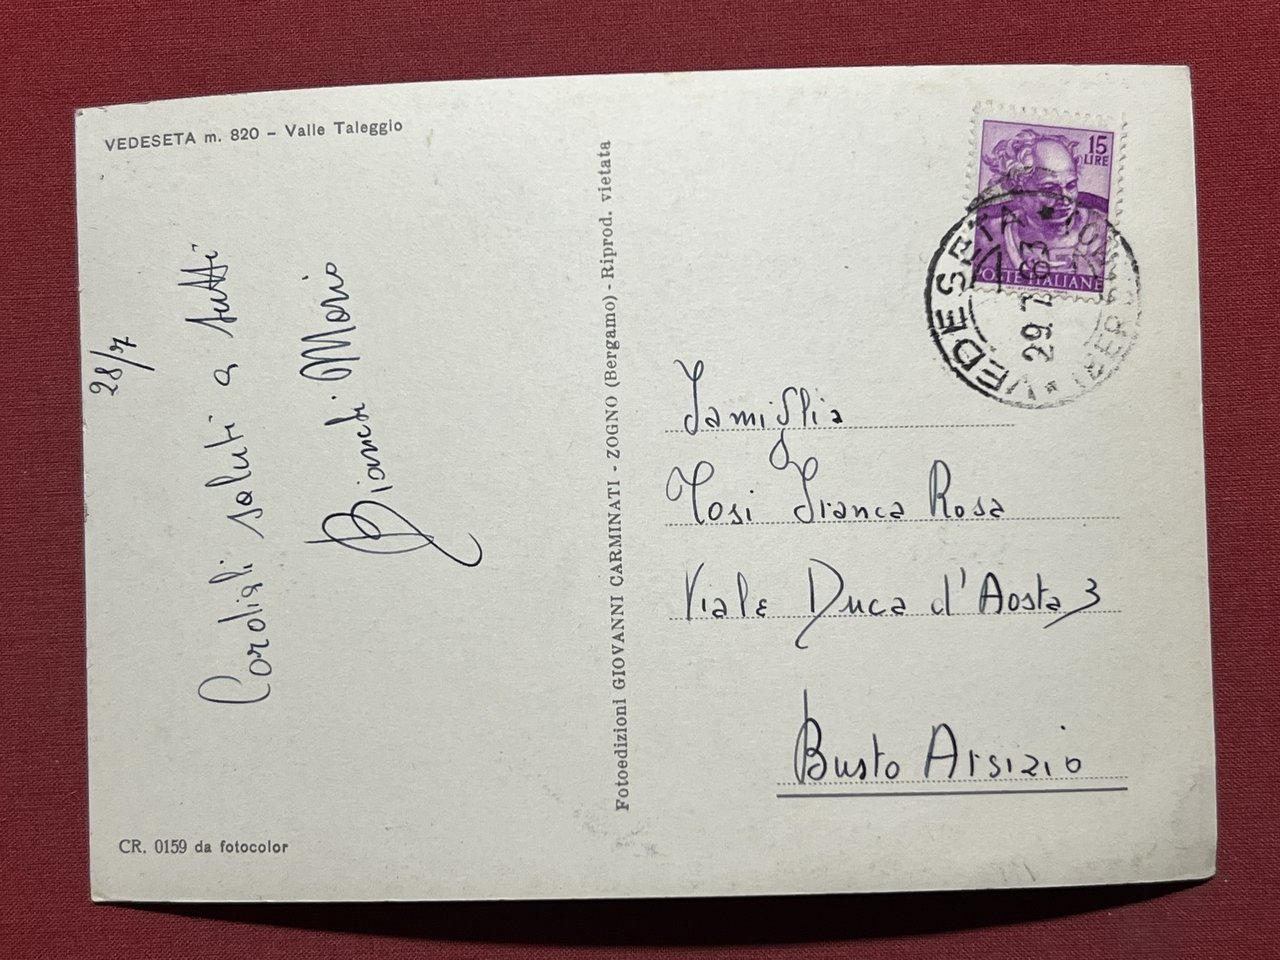 VEDESETA m. 820 - Valle Taleggio
28/7
Cordiali saluti a tutti
Bianchi Mario
CR. 0159 da fotocolor
Fotoedizioni GIOVANNI CARMINATI - ZOGNO (Bergamo) - Riprod. vietata
15
LIRE
POSTE ITALIANE
VEDESETA
29.7.63
Famiglia
Tosi Franca Rosa
Viale Duca d'Aosta 3
Busto Arsizio